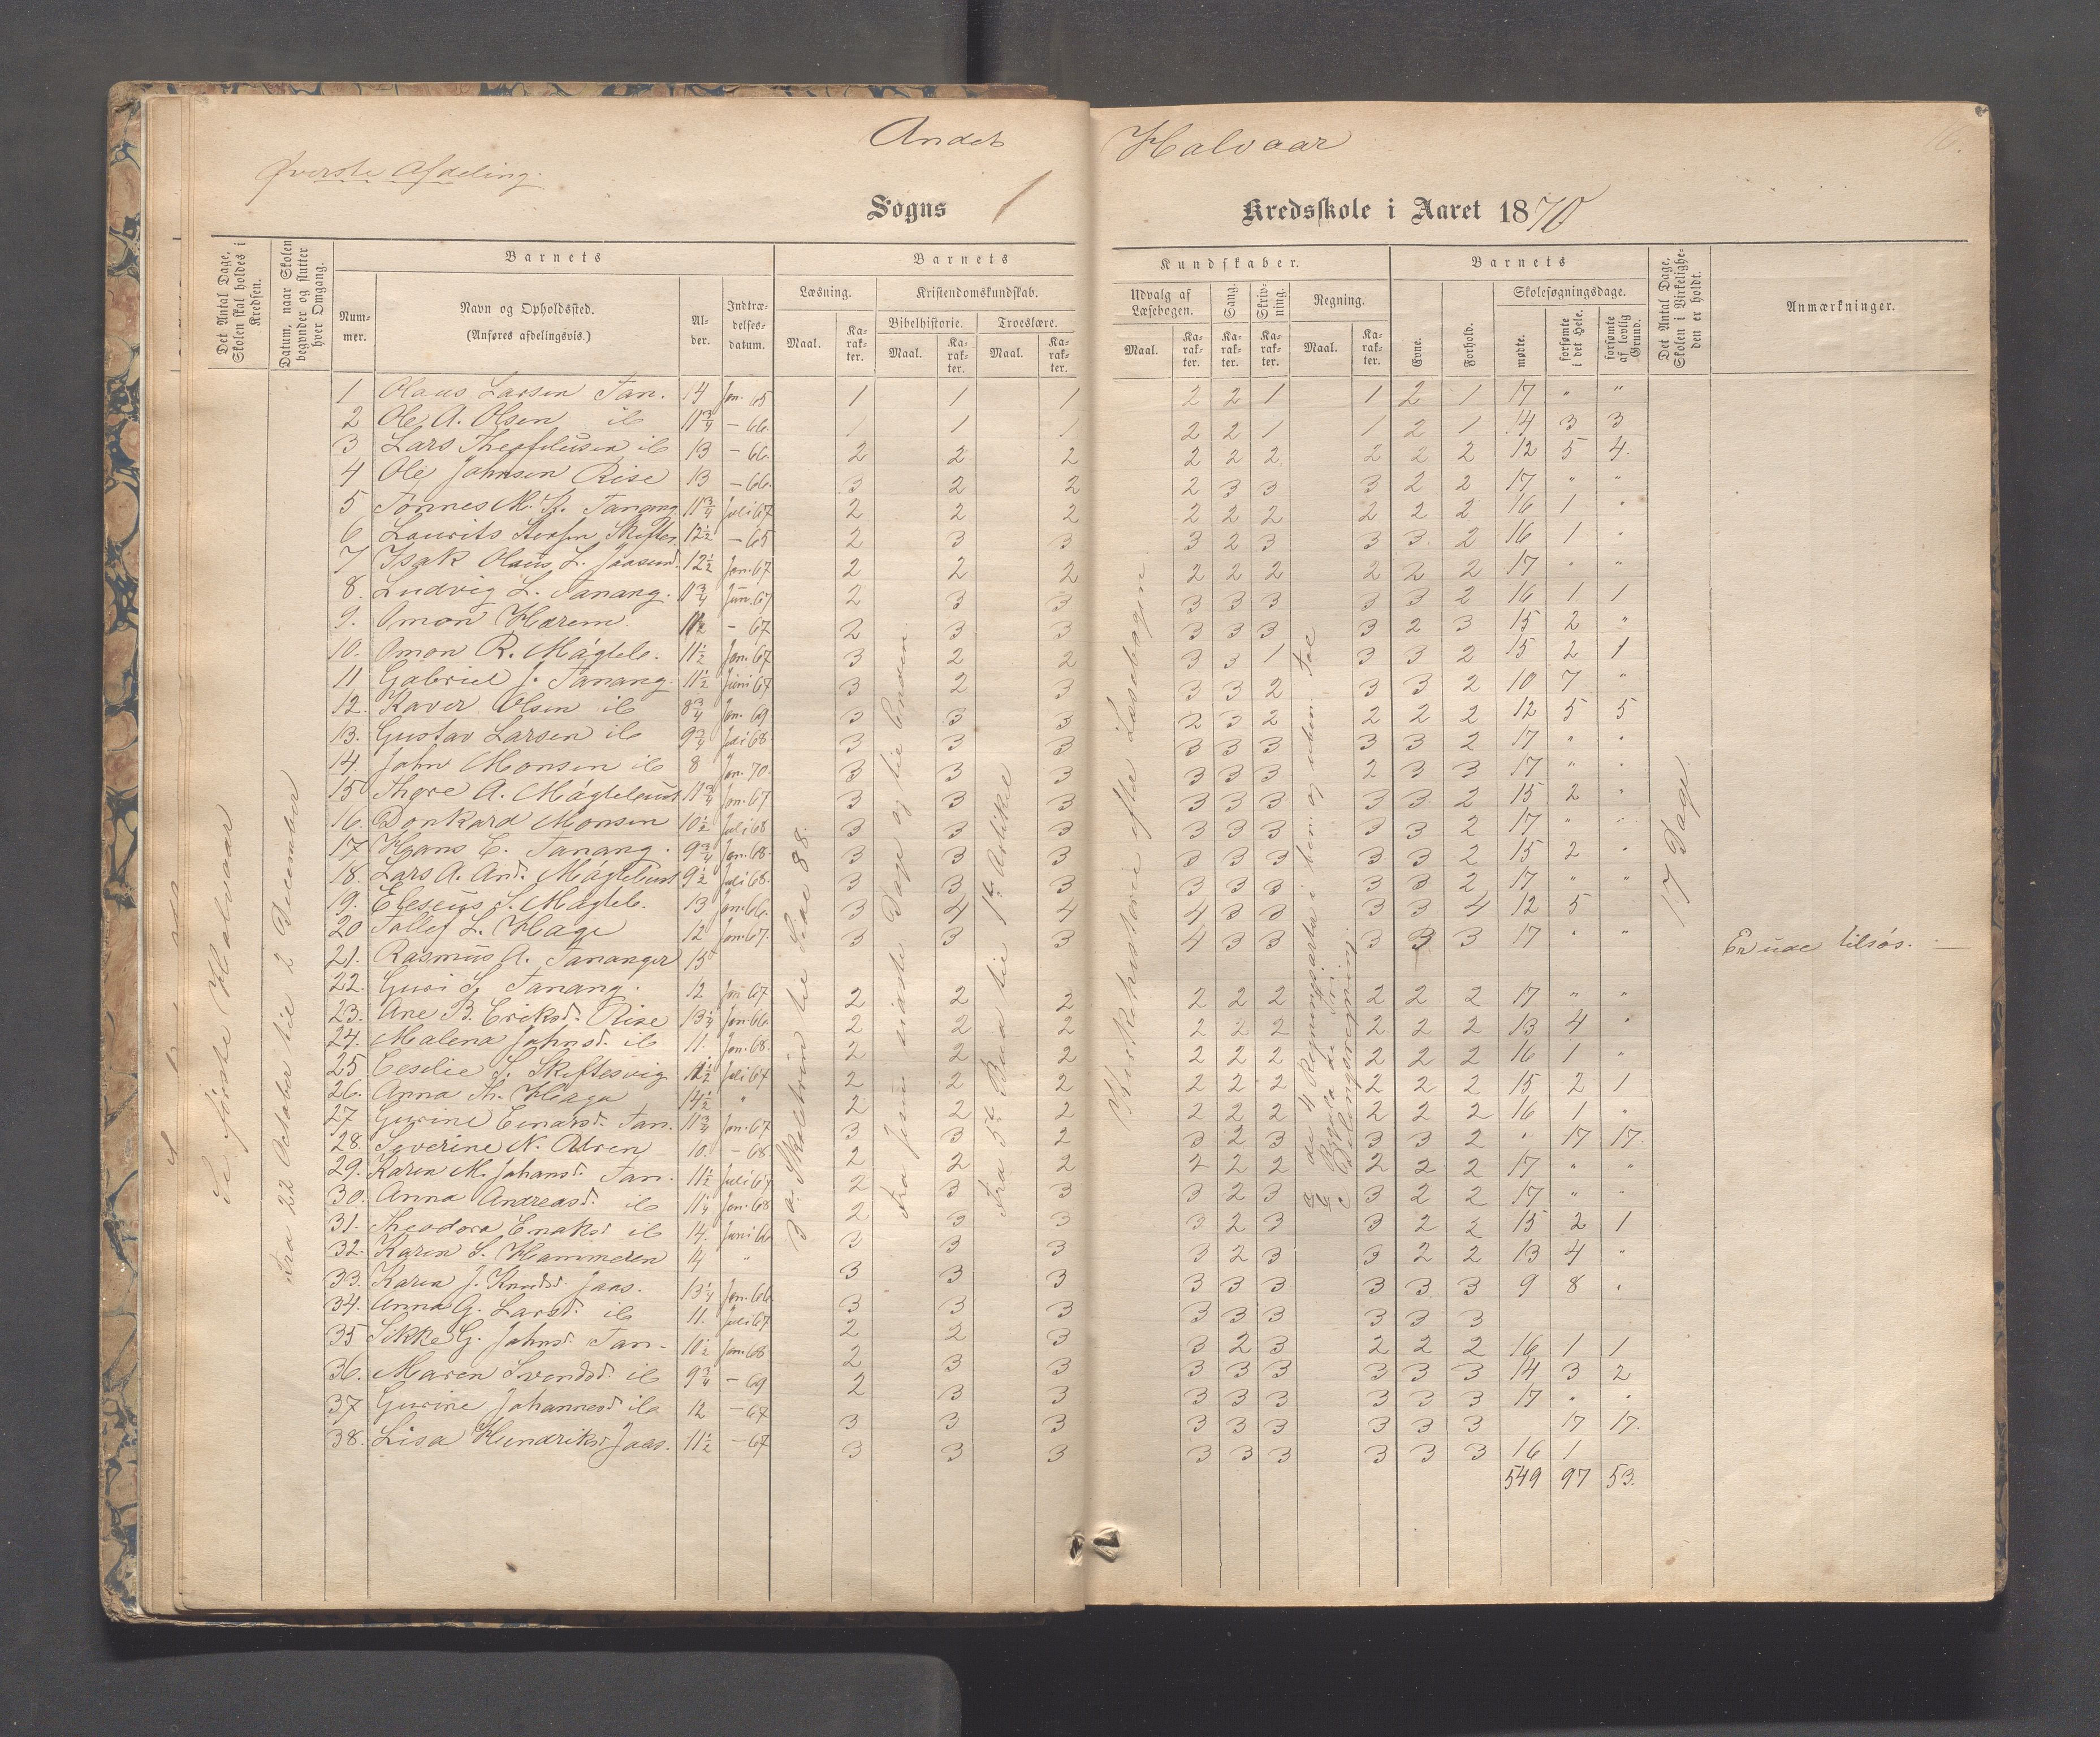 Andet Halvaar
Øverste Afdeling.
Sogns 1 Kredsskole i Aaret 1870
Det Antal Dage, Skolen skal holdes i Kredsen.
Datum, naar Skolen begynder og slutter hver Omgang.
Barnets
Nummer.
Navn og Opholdssted.
(Anføres afdelingsvis.)
Alder.
Indtrædelsesdatum.
Barnets Kundskaber.
Læsning.
Kristendomskundskab.
Bibelhistorie. Troeslære.
Maal. Karakter. Maal. Karakter. Maal. Karakter.
Udvalg af Læsebogen. Sang. Skrivning. Regning.
Maal. Karakter. Karakter. Karakter. Maal. Karakter.
Barnets
Evne. Forhold.
Skolesøgningsdage.
mødte. forsømte i det Hele. forsømte af lovlig Grund.
Det Antal Dage, Skolen i Virkeligheden er holdt.
Anmærkninger.
Se første Halvaar
Fra 22 October til 2 December
1 Olaus Larsen Tan. 14 Jan. 65 1 1 1 2 2 1 1 2 1 17 " "
2 Ole A. Olsen ib 11 3/4 – 66. 1 1 1 2 2 1 1 2 1 14 3 3
3 Lars Theofilusen ib 13 – 66. 2 2 2 2 2 2 2 2 2 12 5 4.
4 Ole Johnsen Rise 13 – 66. 3 2 2 2 3 3 3 2 2 17 " "
5 Tønnes M. Tanang 11 3/4 Juli 67 2 2 2 2 2 2 2 2 2 16 1 "
6 Laurits 12 1/2 – 65 2 3 3 3 2 3 3 3 2 16 1 "
7 Isak Olaus L. Jaasund. 12 1/2 Jan. 67 2 2 2 2 2 2 2 2 2 17 " "
8. Ludvig L. Tanang. 11 3/4 Jun. 67 2 3 3 3 3 3 3 3 2 16 1 1
9. Omon Harem. 11 1/2 – 67 2 3 3 3 3 3 3 2 3 15 2 "
10. Omon R. Mågleb. 11 1/2 Jan. 67 3 2 2 3 3 1 3 3 2 15 2 1
11 Gabriel J. Tanang. 11 1/2 Juni 67 3 2 3 3 3 2 3 3 2 10 7 "
12. Kaver Olsen ib 8 3/4 Jan. 69 3 3 3 2 3 2 2 2 2 12 5 5
13. Gustav Larsen ib 9 3/4 Juli 68 3 3 3 3 3 3 3 3 2 17 " "
14. John Monsen ib 8 Jan. 70. 3 3 3 3 3 3 2 3 3 17 " "
15 Thore A. Mågleb 11 3/4 Jan. 67 3 3 3 3 3 3 3 3 2 15 2 "
16. Donkard Monsen 10 1/2 Juli 68 3 3 3 3 3 3 3 3 2 17 " "
17 Hans E. Tanang. 9 3/4 Jan. 68. 3 3 3 3 3 3 3 3 2 15 2 "
18. Lars A. And. 9 1/2 Juli 68. 3 3 3 3 3 3 3 3 2 17 " "
19. Eleseus S. Mågleb. 13 Jan. 66. 3 4 4 4 3 3 3 3 4 12 5
20 Tollef L. Hage 12 Jan. 67. 3 3 3 4 3 3 3 3 3 17 " "
21. Rasmus A. Tananger 15 Er ude tilsøs. —
22. Guri S. Tanang. 12 Jan 67 2 2 2 2 2 2 2 2 2 17 " "
23. Ane B. Eriksd. Rise 13 1/4 Jan. 66. 2 2 2 2 2 2 2 2 2 13 4 "
24. Malena Johnsd. ib 11. Jan. 68. 2 2 2 2 2 2 2 2 2 16 1 "
25 Ceselie S. Skiftesvig 11 1/2 Juli 67 2 2 2 2 2 2 2 2 2 15 2 1
26. Anna Th. Haga 14 1/2 " 2 2 2 2 2 2 2 2 2 16 1 "
27 Gurine Einarsd. Tan. 11 3/4 Jan. 67 3 3 2 3 2 3 3 3 2 " 17 17.
28. Severine N. 10. – 68 2 2 2 2 2 2 2 2 2 17 " "
29. Karen M. Johansd. Tan. 11 1/2 Juli 67 2 3 3 3 2 3 3 2 2 17 " "
30. Anna Andreasd. ib 11 1/4 Jan. 68 2 3 3 3 2 3 3 2 2 15 2 1
31. Theodora ib 14. Juni 66 3 3 3 3 2 3 3 2 2 13 4 "
32. Karen S. Hammeren 14 " 3 3 3 3 3 3 3 3 3 9 8 "
33. Karen J. Knudsd. Jaas. 13 1/4 Jan. 66 3 3 3 3 3 3 3 3 3
34. Anna G. Larsd. ib 11. Juli 67 2 2 3 3 2 3 2 2 2 16 1 1
35 Sikke G. Johnsd. Tan. 10 1/2 Jan. 68 2 3 3 3 3 3 3 3 3 14 3 2
36. Maren Svendsd. ib 9 3/4 – 69 2 3 3 3 3 3 3 3 3 17 " "
37 Gurine Johannesd. ib 12 – 67 3 3 3 3 3 3 3 3 3 17 17.
38. Lisa Hendriksd. Jaas. 11 1/2 – 67 3 3 3 3 3 3 3 3 3 16 1
549 97 53.
til Side 88.
Fra Jesu sidste Dage og til Enden
Fra 5te Bud til 1ste Artikel
Kirkehistorie efter Læsebogen
de 4 Regningsarter i ben. og ubenv. Tal
Regula de Tri
c Delingsregning.
17 Dage